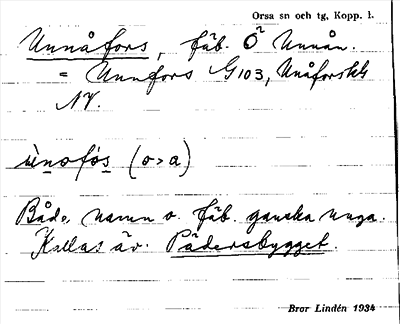 Orsa sn och tg, Kopp. l.
Unnåfors, fäb. Ö Unnån.
= Unnfors G103, Unåforsbk
NV.
ùnofós (o>a)
Både namn o. fäb. ganska unga.
Kallas äv. Pädersbygget.
Bror Lindén 1934